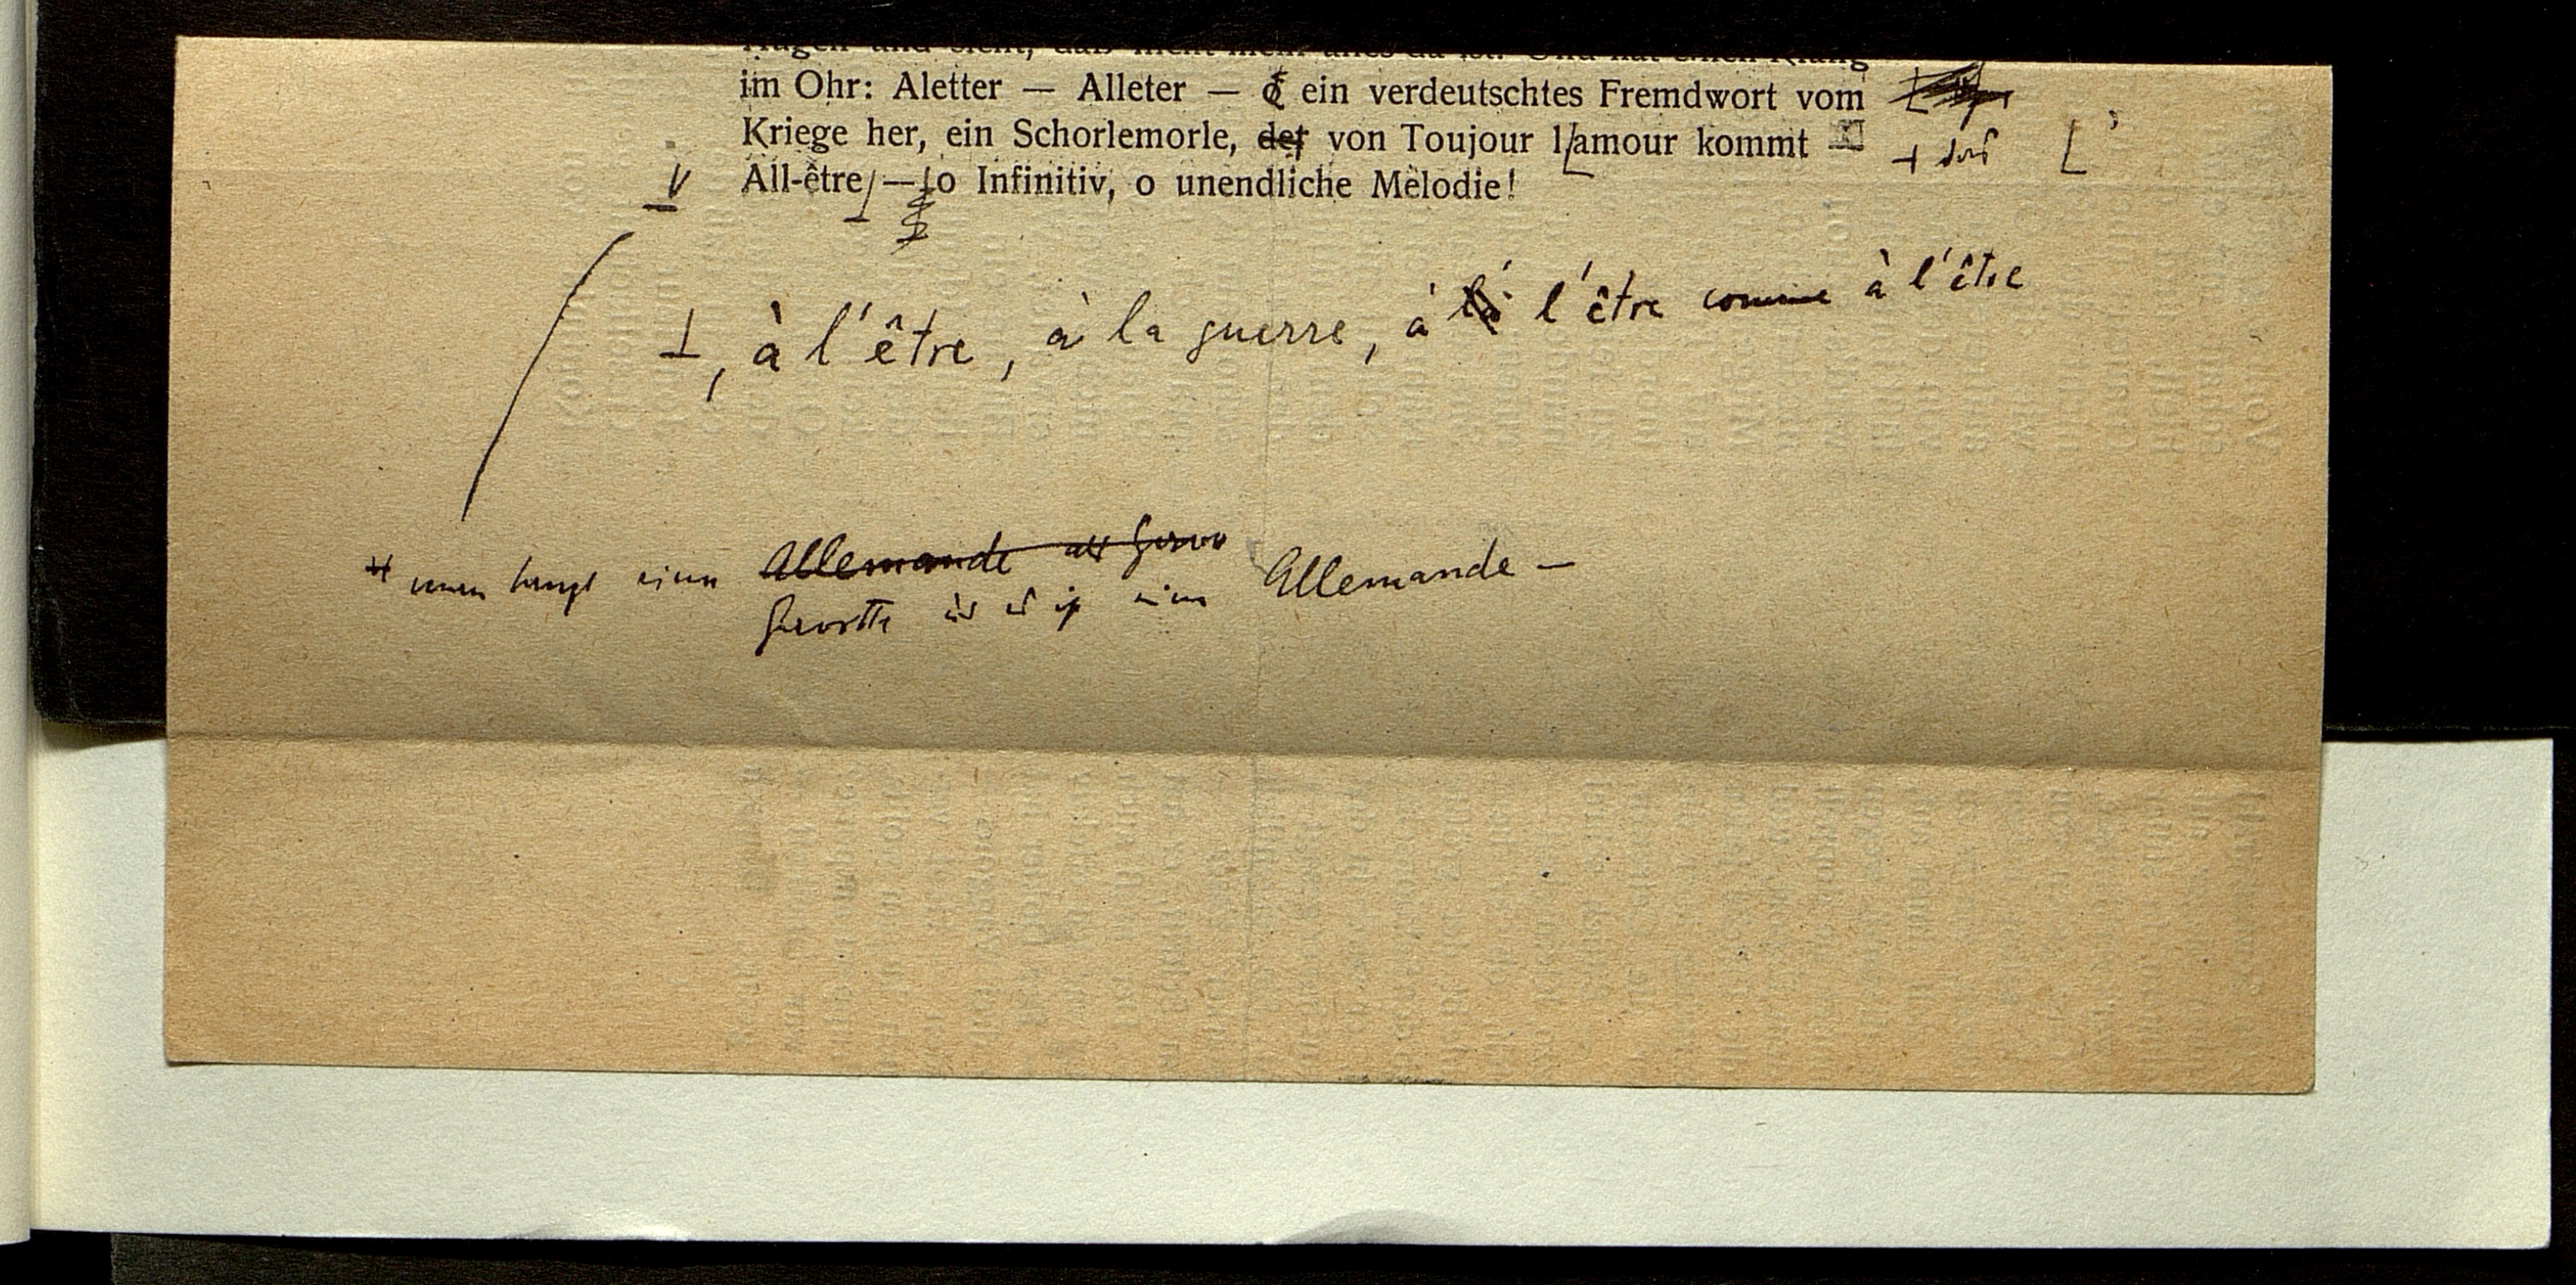 im Ohr: Aletter — Alleter — ein verdeutschtes Fremdwort vom
Kriege her, ein Schorlemorle, der von Toujour l'amour kommt
das
All-être — o Infinitiv, o unendliche Melodie!
, à l'être, à la guerre, à la l'être comme à l'être
man tanzt eine Allemande als Gavo
Gavotte und es ist eine Allemande —